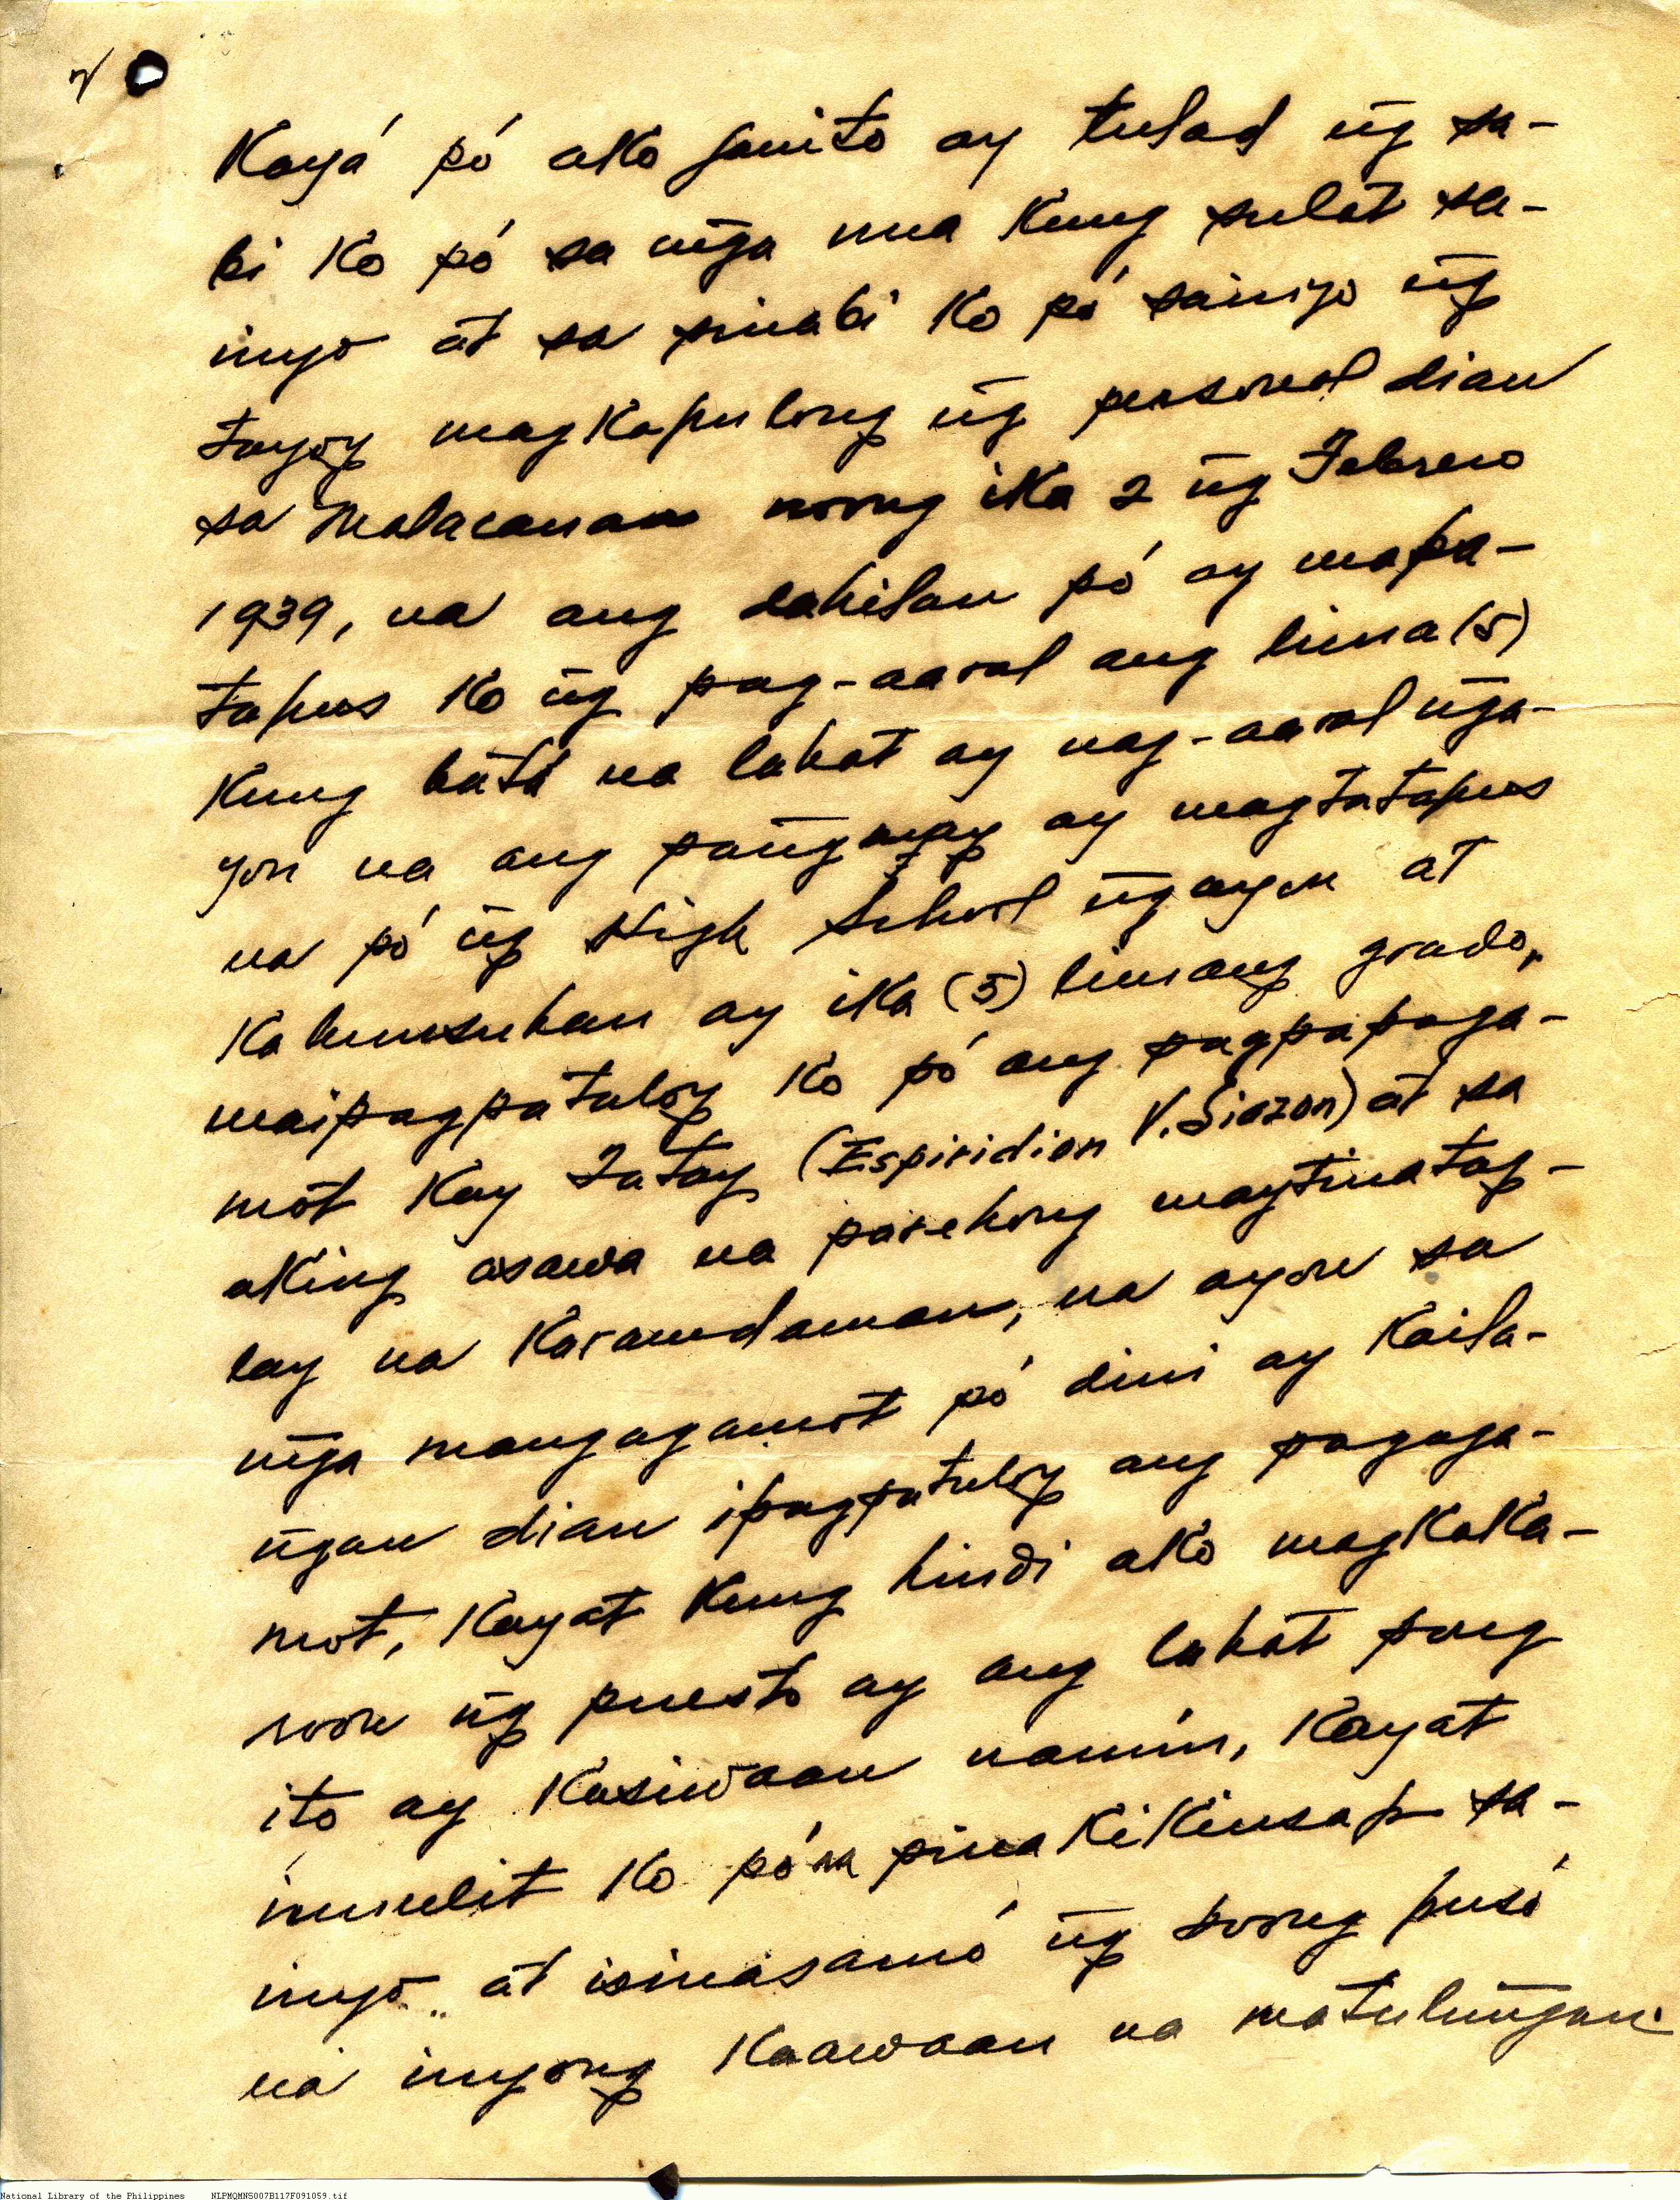 Kayá pó ako ganito ay tulad ng̃ sa-
bi ko pó sa mg̃a nua kung sulat sa-
inyo at sa sinabi ko pó sainyo ng̃
tayoy magkapulong ng̃ personal dian
sa Malacanan noong ika 2 ng̃ Febrero
1939, na ang dahilan pó ay mapa-
tapus ko ng̃ pag-aaral ang lima (5)
kung batá na lahat ay nag-aaral ng̃a-
yon na ang pang̃anay ay magtatapus
na pó ng̃ High School ng̃ayon at
kabunsuhan ay ika (5) limang grado,
maipagpatuloy ko pó ang pagpapaga-
mot kay Tatay (Espiridion V. Siazon) at sa
aking asawa na parehong maytinatag-
lay na karamdaman, na ayon sa
mg̃a mangagamot pó dini ay kaila-
ng̃an dian ipagpatuloy ang pagaga-
mot, kayat kung hindi ako magkaka-
roon ng̃ puesto ay ang lahat pong
ito ay kasiwaan namin, kayat
inuulit ko pó na pinakikiusap sa-
inyo at isinasamó ng̃ boong pusó
na inyong kaawaan na matuling̃an
National Library of the Philippines NLPMQMNS007B117F091059.tif